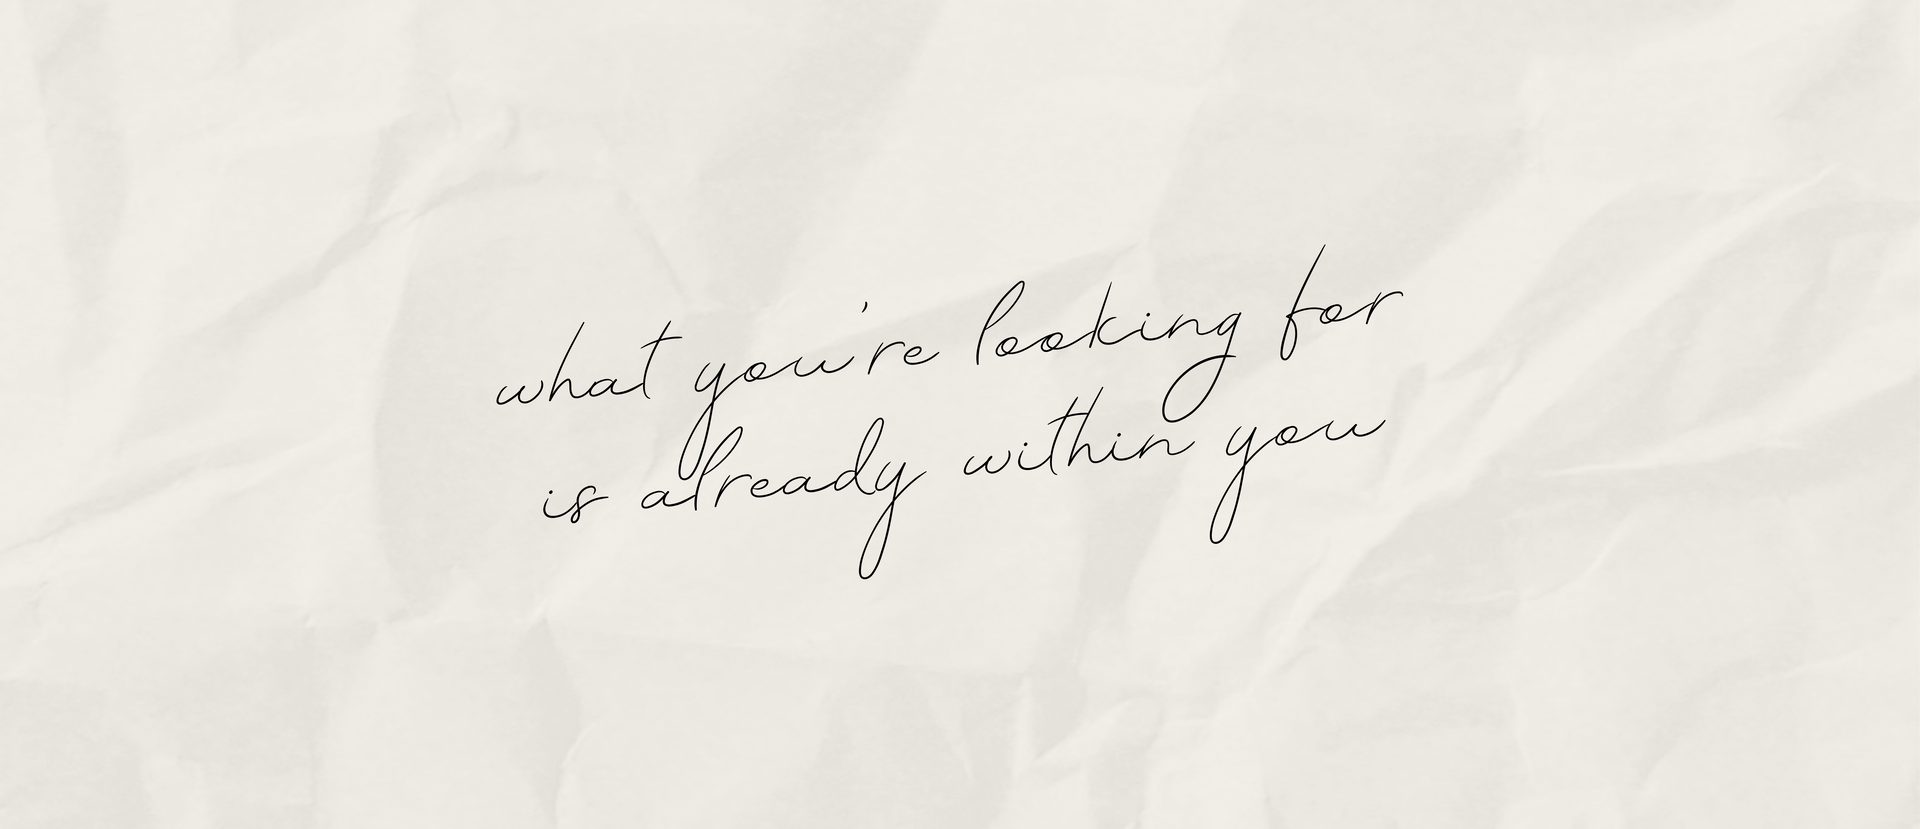 what you're looking for
is already within you